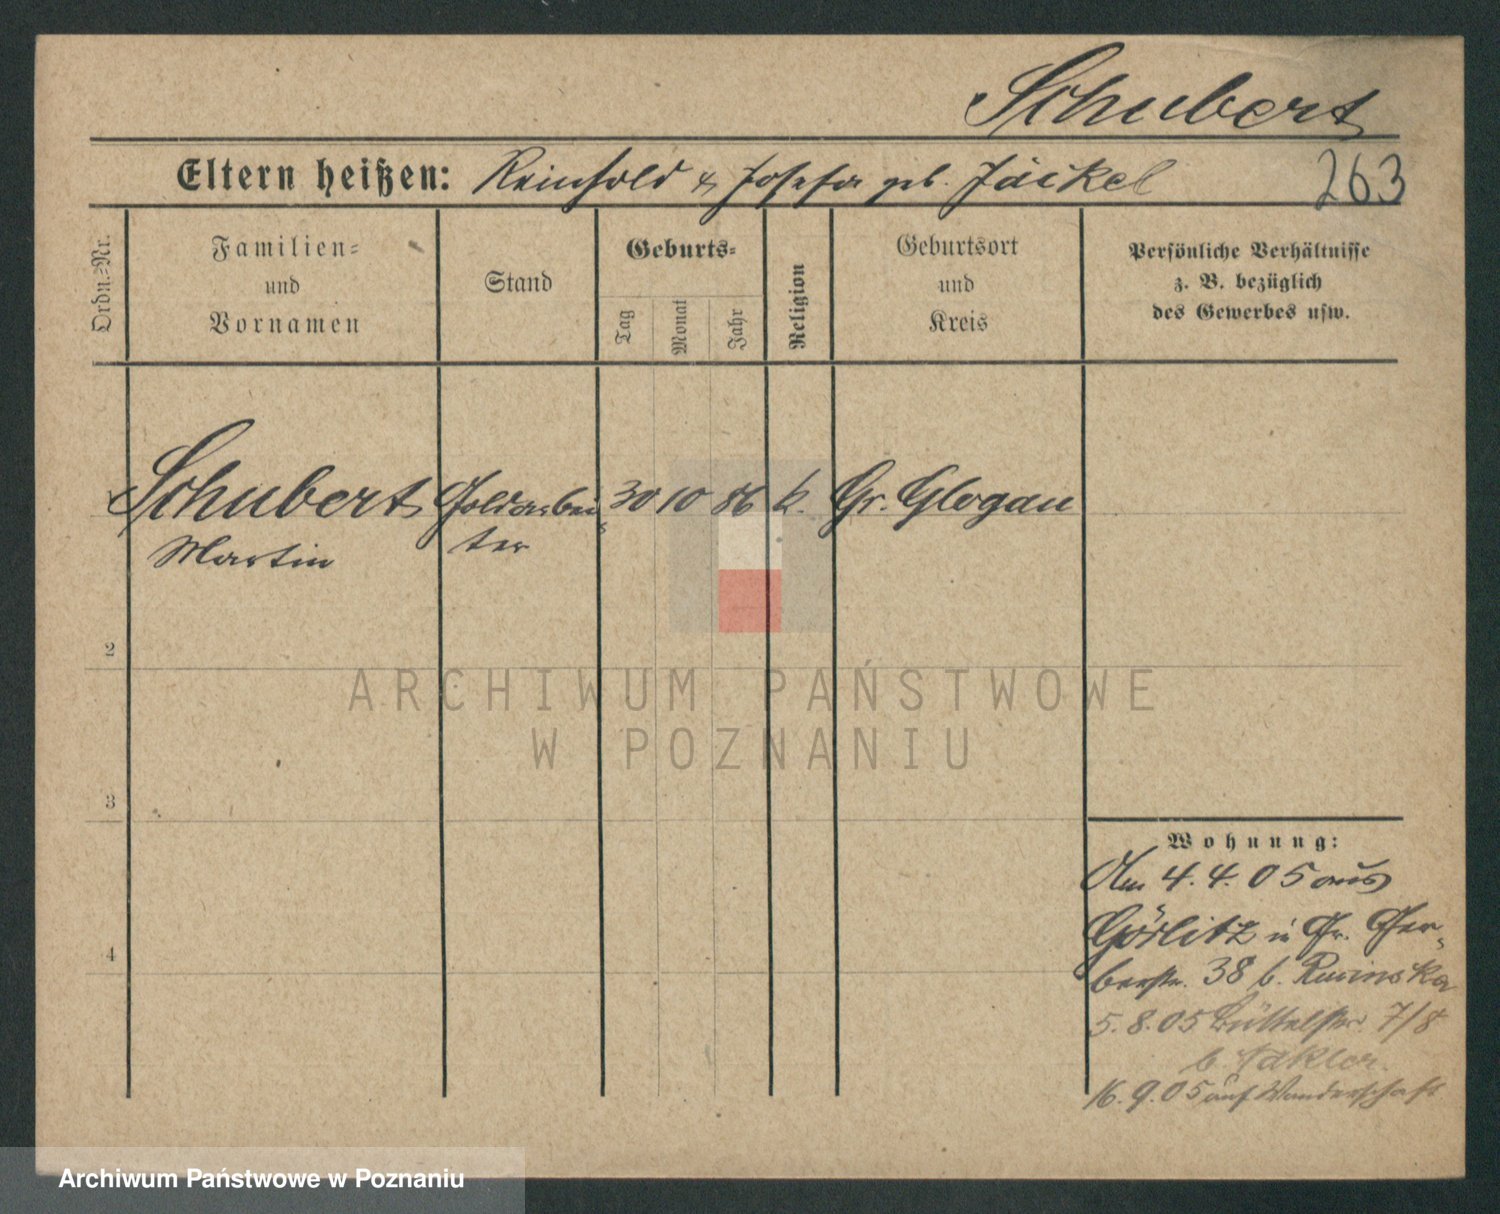 Schubert
Eltern heißen: Reinhold & Josefa geb. Jäckel 263
Ordn.=Nr.
Familien=
und
Vornamen
Stand
Geburts=
Tag
Monat
Jahr
Religion
Geburtsort
und
Kreis
Persönliche Verhältnisse
z. B. bezüglich
des Gewerbes usw.
Schubert Goldarbei= 30 10 86 k. Gr. Glogau
Martin ter
2
ARCHIWUM PAŃSTWOWE
W POZNANIU
3
4
Wohnung:
Am 4. 4. 05 aus
Görlitz in Gr. Ger=
berstr. 38 b.
5. 8. 05 Büttelstr. 7/8
b.
16. 9. 05 auf Wanderschaft
Archiwum Państwowe w Poznaniu